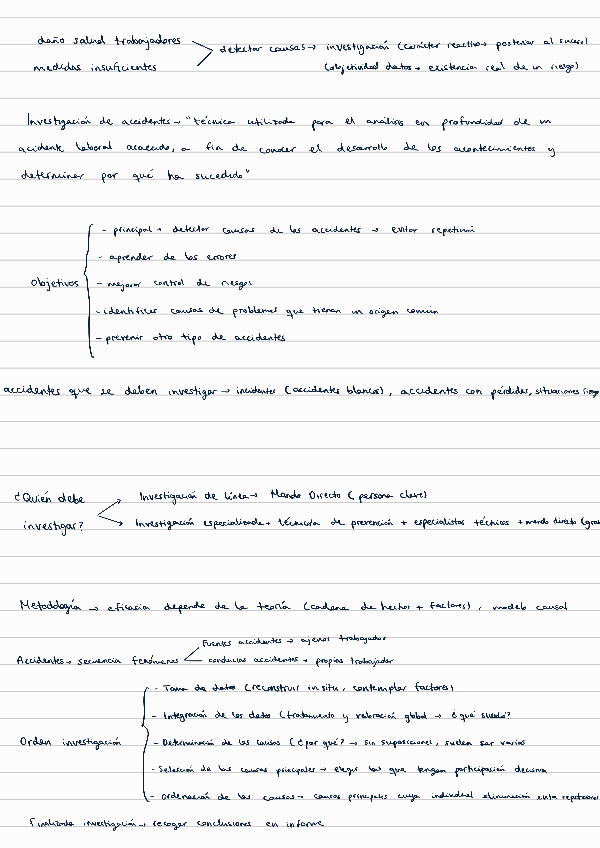 daño salud trabajadores
medidas insuficientes
detectar causas → investigación (carácter reactivo → posterior al suceso)
(objetividad datos → existencia real de un riesgo)
Investigación de accidentes → "técnica utilizada para el análisis en profundidad de un
acidente laboral acaecido, a fin de conocer el desarrollo de los acontecimientos y
determinar por qué ha sucedido"
Objetivos
- principal → detectar causas de los accidentes → evitar repetición
- aprender de los errores
- mejorar control de riesgos
- identificar causas de problemas que tienen un origen común
- prevenir otro tipo de accidentes
accidentes que se deben investigar → incidentes (accidentes blancos), accidentes con pérdidas, situaciones
¿Quién debe
investigar?
Investigación de línea → Mando Directo (persona clave)
Investigación especializada → técnico/a de prevención + especialistas técnicos + mando directo
Metodología → eficacia depende de la teoría (cadena de hechos + factores), modelo causal
Accidentes → secuencia fenómenos
Fuentes accidentes → ajenos trabajador
conductas accidentes → propias trabajador
Orden investigación
- Toma de datos (reconstruir in situ, contemplar factores)
- Integración de los datos (tratamiento y valoración global → ¿qué sucedió?
- Determinación de las causas (¿por qué? → sin suposiciones, suelen ser varias
- Selección de las causas principales → elegir las que tengan participación decisiva
- ordenación de las causas → causas principales cuya individual eliminación evita
Finalizada investigación → recoger conclusiones en informe